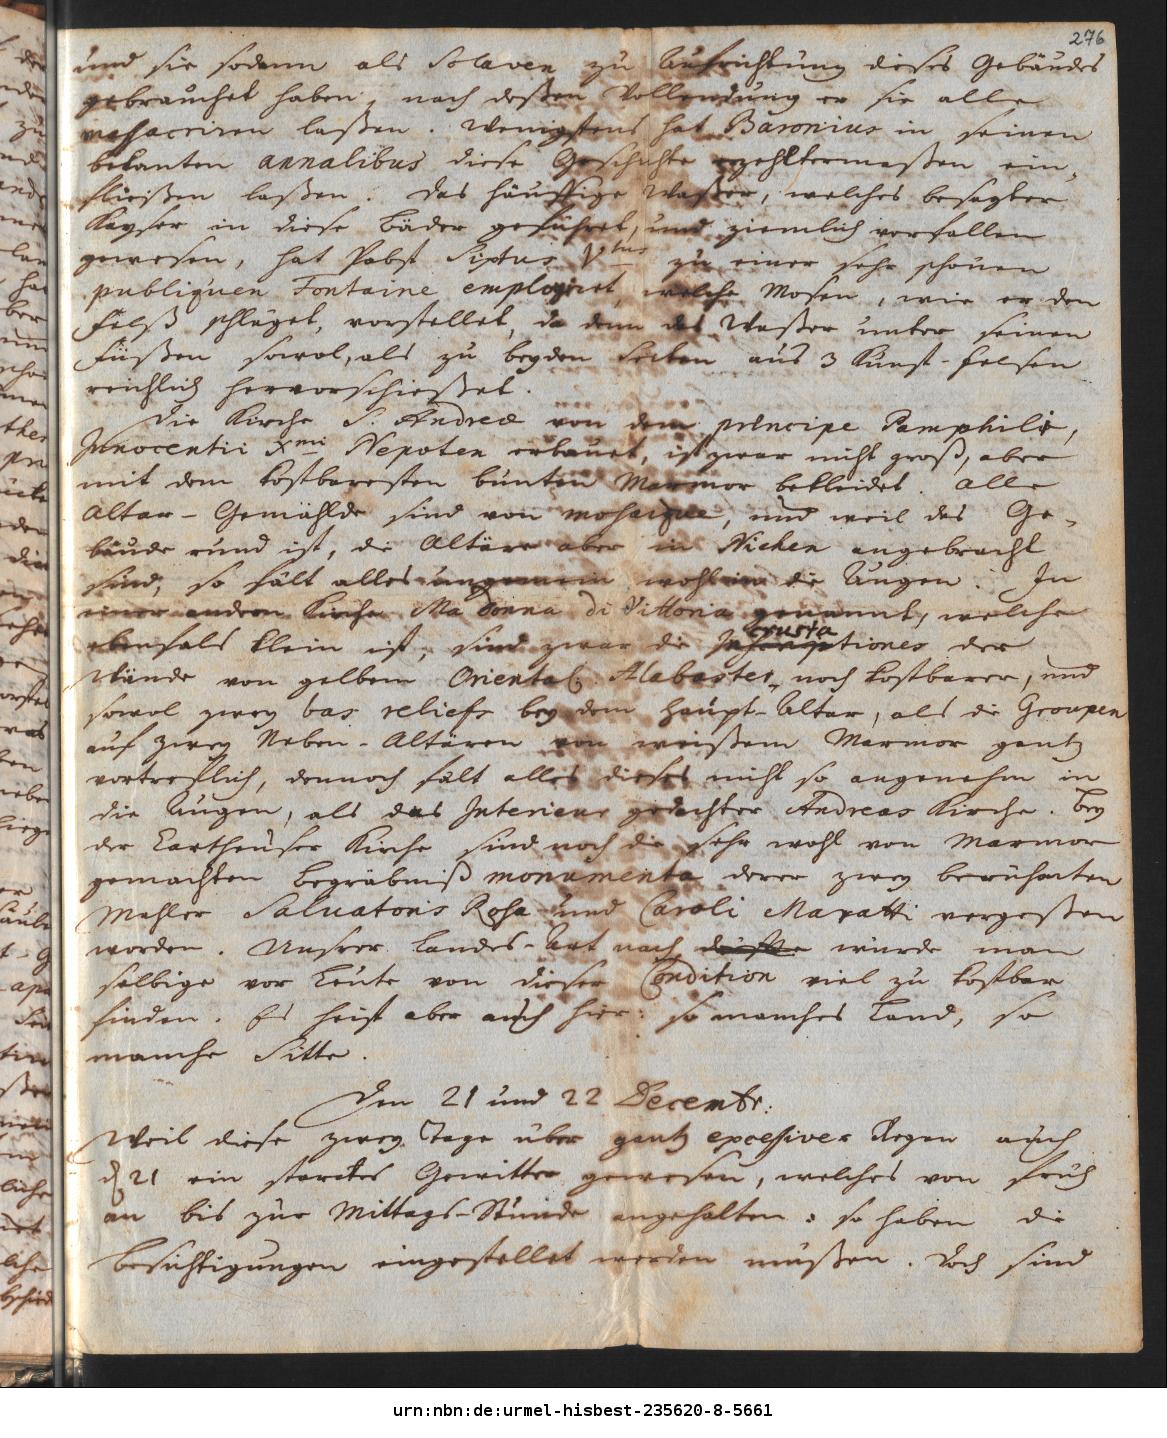 276
und sie sodann als Sclaven zu Aufrichtung dieses Gebäudes
gebrauchet haben, nach deßen Vollendung er sie alle
massacriren laßen. Wenigstens hat Baronius in seinen
bekanten annalibus diese Geschichte erzehltermaßen ein-
fließen laßen. Das häuffige Waßer, welches besagter
Kayser in diese Bäder geführet, und ziemlich verfallen
gewesen, hat Pabst Sixtus Vtus zu einer sehr schönen
publiquen Fontaine employret, welche Mosen, wie er den
Felß schläget, vorstellet, da denn das Waßer unter seinen
Füßen sowol, als zu beyden Seiten aus 3 Kunst-Felsen
reichlich hervorschießet.
Die Kirche S. Andreæ von dem principe Pamphilio,
Innocentii Xmi Nepoten erbauet, ist zwar nicht groß, aber
mit dem kostbaresten bunten Marmor bekleidet. Alle
Altar-Gemählde sind von mosaique, und weil das Ge-
bäude rund ist, die Altäre aber in Nichen angebracht
sind, so fält alles ungemein wohl in die Augen. In
einer andern Kirche Madonna di Vittoria genannt, welche
ebenfals klein ist, sind zwar die Incrustationes der
Wände von gelbem Oriental. Alabaster noch kostbarer, und
sowol zwey bas reliefs bey dem Haupt-Altar, als die Groupen
auf zwey Neben-Altären von weißem Marmor gantz
vortreflich, dennoch fält alles dieses nicht so angenehm in
die Augen, als das Interieur gedachter Andreas Kirche. Bey
der Cartheuser Kirche sind noch die sehr wohl von Marmor
gemachten Begräbniß monumenta derer zwey berühmten
Mahler Salvatoris Rosa und Caroli Maratti vergeßen
worden. Unsrer Landes-Art nach würde man
selbige vor Leute von dieser Condition viel zu kostbar
finden. Es heist aber auch hier: so manches Land, so
manche Sitte.
Den 21 und 22 Decembr.
Weil diese zwey Tage über gantz excessiver Regen auch
d. 21 ein starckes Gewitter gewesen, welches von früh
an bis zur Mittags-Stunde angehalten: so haben die
Besichtigungen eingestellet werden müßen. Doch sind
urn:nbn:de:urmel-hisbest-235620-8-5661